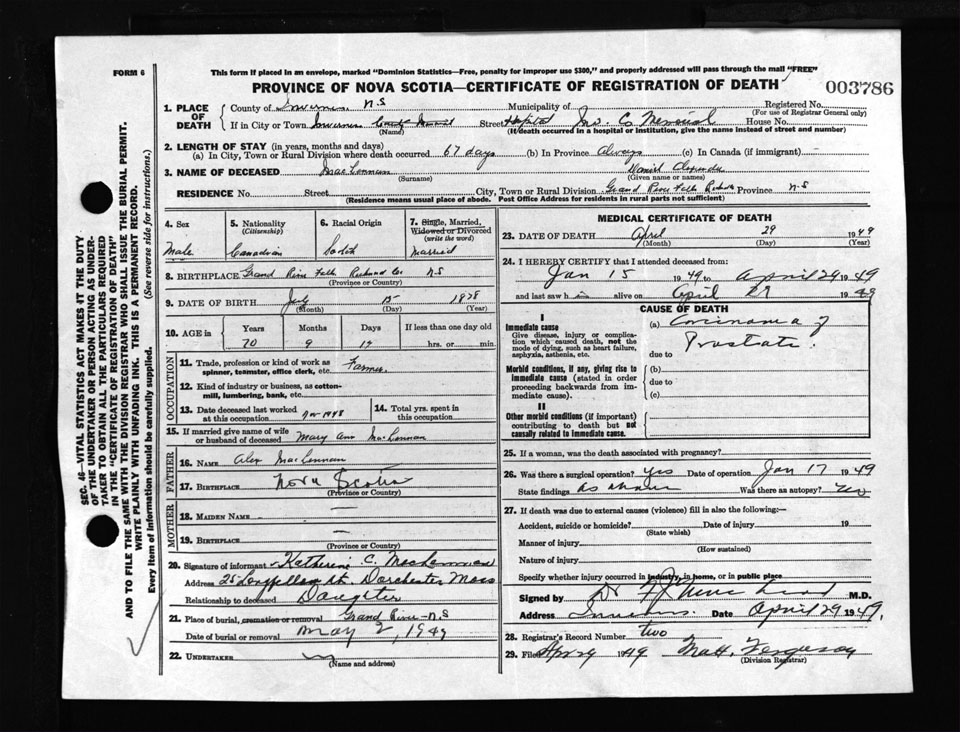 FORM 6
This form if placed in an envelope, marked "Dominion Statistics—Free, penalty for improper use $300," and properly addressed will pass through the mail "FREE"
PROVINCE OF NOVA SCOTIA—CERTIFICATE OF REGISTRATION OF DEATH
003786
1. PLACE OF DEATH
County of Inverness N.S Municipality of Registered No.
(For use of Registrar General only)
If in City or Town Inverness Street Hospital Inv. Co Memorial House No.
(Name) (If death occurred in a hospital or institution, give the name instead of street and number)
2. LENGTH OF STAY (in years, months and days)
(a) In City, Town or Rural Division where death occurred 67 days (b) In Province Always (c) In Canada (if immigrant)
3. NAME OF DECEASED MacLennan Alexander
(Surname) (Given name or names)
RESIDENCE No. Street City, Town or Rural Division Grand River Falls Richmond Province N.S
(Residence means usual place of abode. Post Office Address for residents in rural parts not sufficient)
4. Sex
Male
5. Nationality
(Citizenship)
Canadian
6. Racial Origin
Scotch
7. Single, Married,
Widowed or Divorced
(write the word)
Married
8. BIRTHPLACE Grand River Falls Richmond Co. N.S
(Province or Country)
9. DATE OF BIRTH July 15 1878
(Month) (Day) (Year)
10. AGE in
Years Months Days If less than one day old
70 9 hrs. or min.
OCCUPATION
11. Trade, profession or kind of work as
spinner, teamster, office clerk, etc. Farmer
12. Kind of industry or business, as cotton-
mill, lumbering, bank, etc.
13. Date deceased last worked
at this occupation Nov 1948
14. Total yrs. spent in
this occupation
15. If married give name of wife
or husband of deceased Mary Ann MacLennan
FATHER
16. NAME Alex MacLennan
17. BIRTHPLACE Nova Scotia
(Province or Country)
MOTHER
18. MAIDEN NAME —
19. BIRTHPLACE —
(Province or Country)
20. Signature of informant Katherine C. MacLennan
Address 25 Longfellow St. Dorchester Mass
Relationship to deceased Daughter
21. Place of burial, cremation or removal Grand River - N.S
Date of burial or removal May 2, 1949
22. UNDERTAKER
(Name and address)
MEDICAL CERTIFICATE OF DEATH
23. DATE OF DEATH April 29 1949
(Month) (Day) (Year)
24. I HEREBY CERTIFY that I attended deceased from:
Jan 15 1949 to April 29 1949
and last saw him alive on April 29 1949
CAUSE OF DEATH
I
Immediate cause
Give disease, injury or complication which caused death, not the mode of dying, such as heart failure, asphyxia, asthenia, etc.
(a) Carcinoma of
due to Prostate.
Morbid conditions, if any, giving rise to immediate cause (stated in order proceeding backwards from immediate cause).
(b)
due to
(c)
II
Other morbid conditions (if important) contributing to death but not causally related to immediate cause.
25. If a woman, was the death associated with pregnancy?
26. Was there a surgical operation? Yes Date of operation Jan 17 1949
State findings As above Was there an autopsy? No
27. If death was due to external causes (violence) fill in also the following:—
Accident, suicide or homicide? Date of injury 19
(State which)
Manner of injury
(How sustained)
Nature of injury
Specify whether injury occurred in industry, in home, or in public place
Signed by M.D.
Address Inverness. Date April 29 1949.
28. Registrar's Record Number two
29. Filed 1949 Matt. Ferguson
(Division Registrar)
SEC. 46—VITAL STATISTICS ACT MAKES IT THE DUTY
OF THE UNDERTAKER OR PERSON ACTING AS UNDER-
TAKER TO OBTAIN ALL THE PARTICULARS REQUIRED
IN THE "CERTIFICATE OF REGISTRATION OF DEATH"
AND TO FILE THE SAME WITH THE DIVISION REGISTRAR WHO SHALL ISSUE THE BURIAL PERMIT.
WRITE PLAINLY WITH UNFADING INK. THIS IS A PERMANENT RECORD.
Every item of information should be carefully supplied. (See reverse side for instructions.)